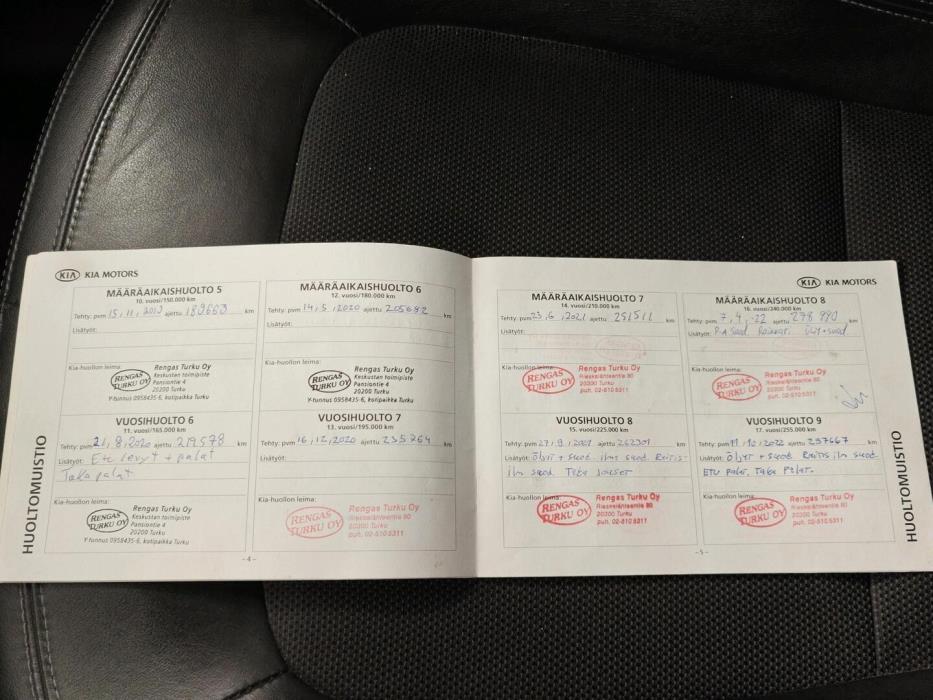 KIA KIA MOTORS
MÄÄRÄAIKAISHUOLTO 5
10. vuosi/150.000 km
Tehty: pvm 15,11,2019 ajettu 189663 km
Lisätyöt:
Kia-huollon leima:
RENGAS TURKU OY
Rengas Turku Oy
Keskustan toimipiste
Pansiontie 4
20200 Turku
Y-tunnus 0958435-6, kotipaikka Turku
VUOSIHUOLTO 6
11. vuosi/165.000 km
Tehty: pvm 21,8,2020 ajettu 219578 km
Lisätyöt: Etu levyt + palat
Taka palat
Kia-huollon leima:
RENGAS TURKU OY
Rengas Turku Oy
Keskustan toimipiste
Pansiontie 4
20200 Turku
Y-tunnus 0958435-6, kotipaikka Turku
MÄÄRÄAIKAISHUOLTO 6
12. vuosi/180.000 km
Tehty: pvm 14,5,2020 ajettu 205682 km
Lisätyöt:
Kia-huollon leima:
RENGAS TURKU OY
Rengas Turku Oy
Keskustan toimipiste
Pansiontie 4
20200 Turku
Y-tunnus 0958435-6, kotipaikka Turku
VUOSIHUOLTO 7
13. vuosi/195.000 km
Tehty: pvm 16,12,2020 ajettu 235764 km
Lisätyöt:
Kia-huollon leima:
RENGAS TURKU OY
Rengas Turku Oy
Rieskalähteentie 80
20300 Turku
puh. 02-510 5311
HUOLTOMUISTIO
-4-
KIA KIA MOTORS
MÄÄRÄAIKAISHUOLTO 7
14. vuosi/210.000 km
Tehty: pvm 23,6,2021 ajettu 251511 km
Lisätyöt:
Kia-huollon leima:
RENGAS TURKU OY
Rengas Turku Oy
Rieskalähteentie 80
20300 Turku
puh. 02-510 5311
VUOSIHUOLTO 8
15. vuosi/225.000 km
Tehty: pvm 27,9,2021 ajettu 262301 km
Lisätyöt: Öljyt + suod. ilm suod. Raitis-
ilm suod. Taka jouset
Kia-huollon leima:
RENGAS TURKU OY
Rengas Turku Oy
Rieskalähteentie 80
20300 Turku
puh. 02-510 5311
MÄÄRÄAIKAISHUOLTO 8
16. vuosi/240.000 km
Tehty: pvm 7,4,-22 ajettu 278990 km
Lisätyöt: P-A Suod Öljy+suod
Kia-huollon leima:
RENGAS TURKU OY
Rengas Turku Oy
Rieskalähteentie 80
20300 Turku
puh. 02-510 5311
VUOSIHUOLTO 9
17. vuosi/255.000 km
Tehty: pvm 11,10,2022 ajettu 297667 km
Lisätyöt: Öljyt + suod. Raitis ilm suod.
ETU palat, Taka Palat.
Kia-huollon leima:
RENGAS TURKU OY
Rengas Turku Oy
Rieskalähteentie 80
20300 Turku
puh. 02-510 5311
HUOLTOMUISTIO
-5-